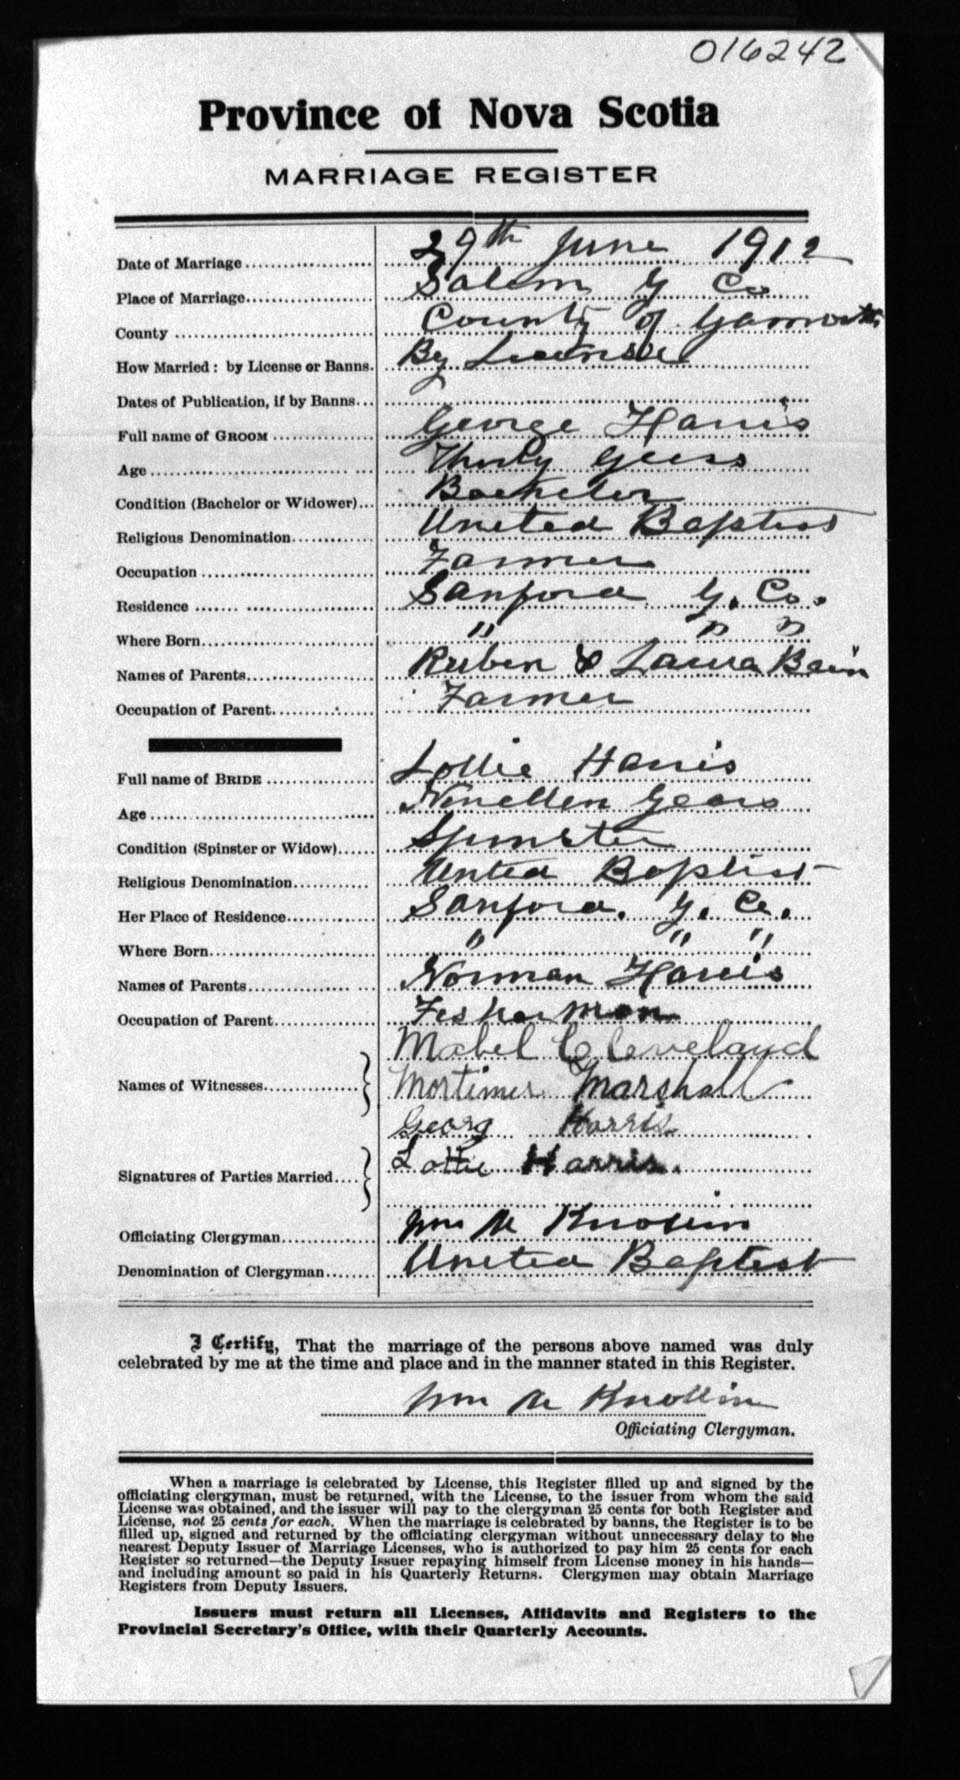 016242
Province of Nova Scotia
MARRIAGE REGISTER
Date of Marriage 29th June 1912
Place of Marriage Salem Y Co
County County of Yarmouth
How Married: by License or Banns. By License
Dates of Publication, if by Banns
Full name of GROOM George Harris
Age Thirty Years
Condition (Bachelor or Widower) Bachelor
Religious Denomination United Baptist
Occupation Farmer
Residence Sanford Y. Co.
Where Born " " "
Names of Parents Ruben & Laura Bain
Occupation of Parent Farmer
Full name of BRIDE Lottie Harris
Age Nineteen Years
Condition (Spinster or Widow) Spinster
Religious Denomination United Baptist
Her Place of Residence Sanford. Y. Co.
Where Born " " "
Names of Parents Norman Harris
Occupation of Parent Fisherman
Mabel Cleveland
Names of Witnesses Mortimer Marshall
Georg Harris
Signatures of Parties Married Lottie Harris.
Officiating Clergyman Wm M Knollin
Denomination of Clergyman United Baptist
I Certify, That the marriage of the persons above named was duly
celebrated by me at the time and place and in the manner stated in this Register.
Wm M Knollin
Officiating Clergyman.
When a marriage is celebrated by License, this Register filled up and signed by the
officiating clergyman, must be returned, with the License, to the issuer from whom the said
License was obtained, and the issuer will pay to the clergyman 25 cents for both Register and
License, not 25 cents for each. When the marriage is celebrated by banns, the Register is to be
filled up, signed and returned by the officiating clergyman without unnecessary delay to the
nearest Deputy Issuer of Marriage Licenses, who is authorized to pay him 25 cents for each
Register so returned—the Deputy Issuer repaying himself from License money in his hands—
and including amount so paid in his Quarterly Returns. Clergymen may obtain Marriage
Registers from Deputy Issuers.
Issuers must return all Licenses, Affidavits and Registers to the
Provincial Secretary's Office, with their Quarterly Accounts.